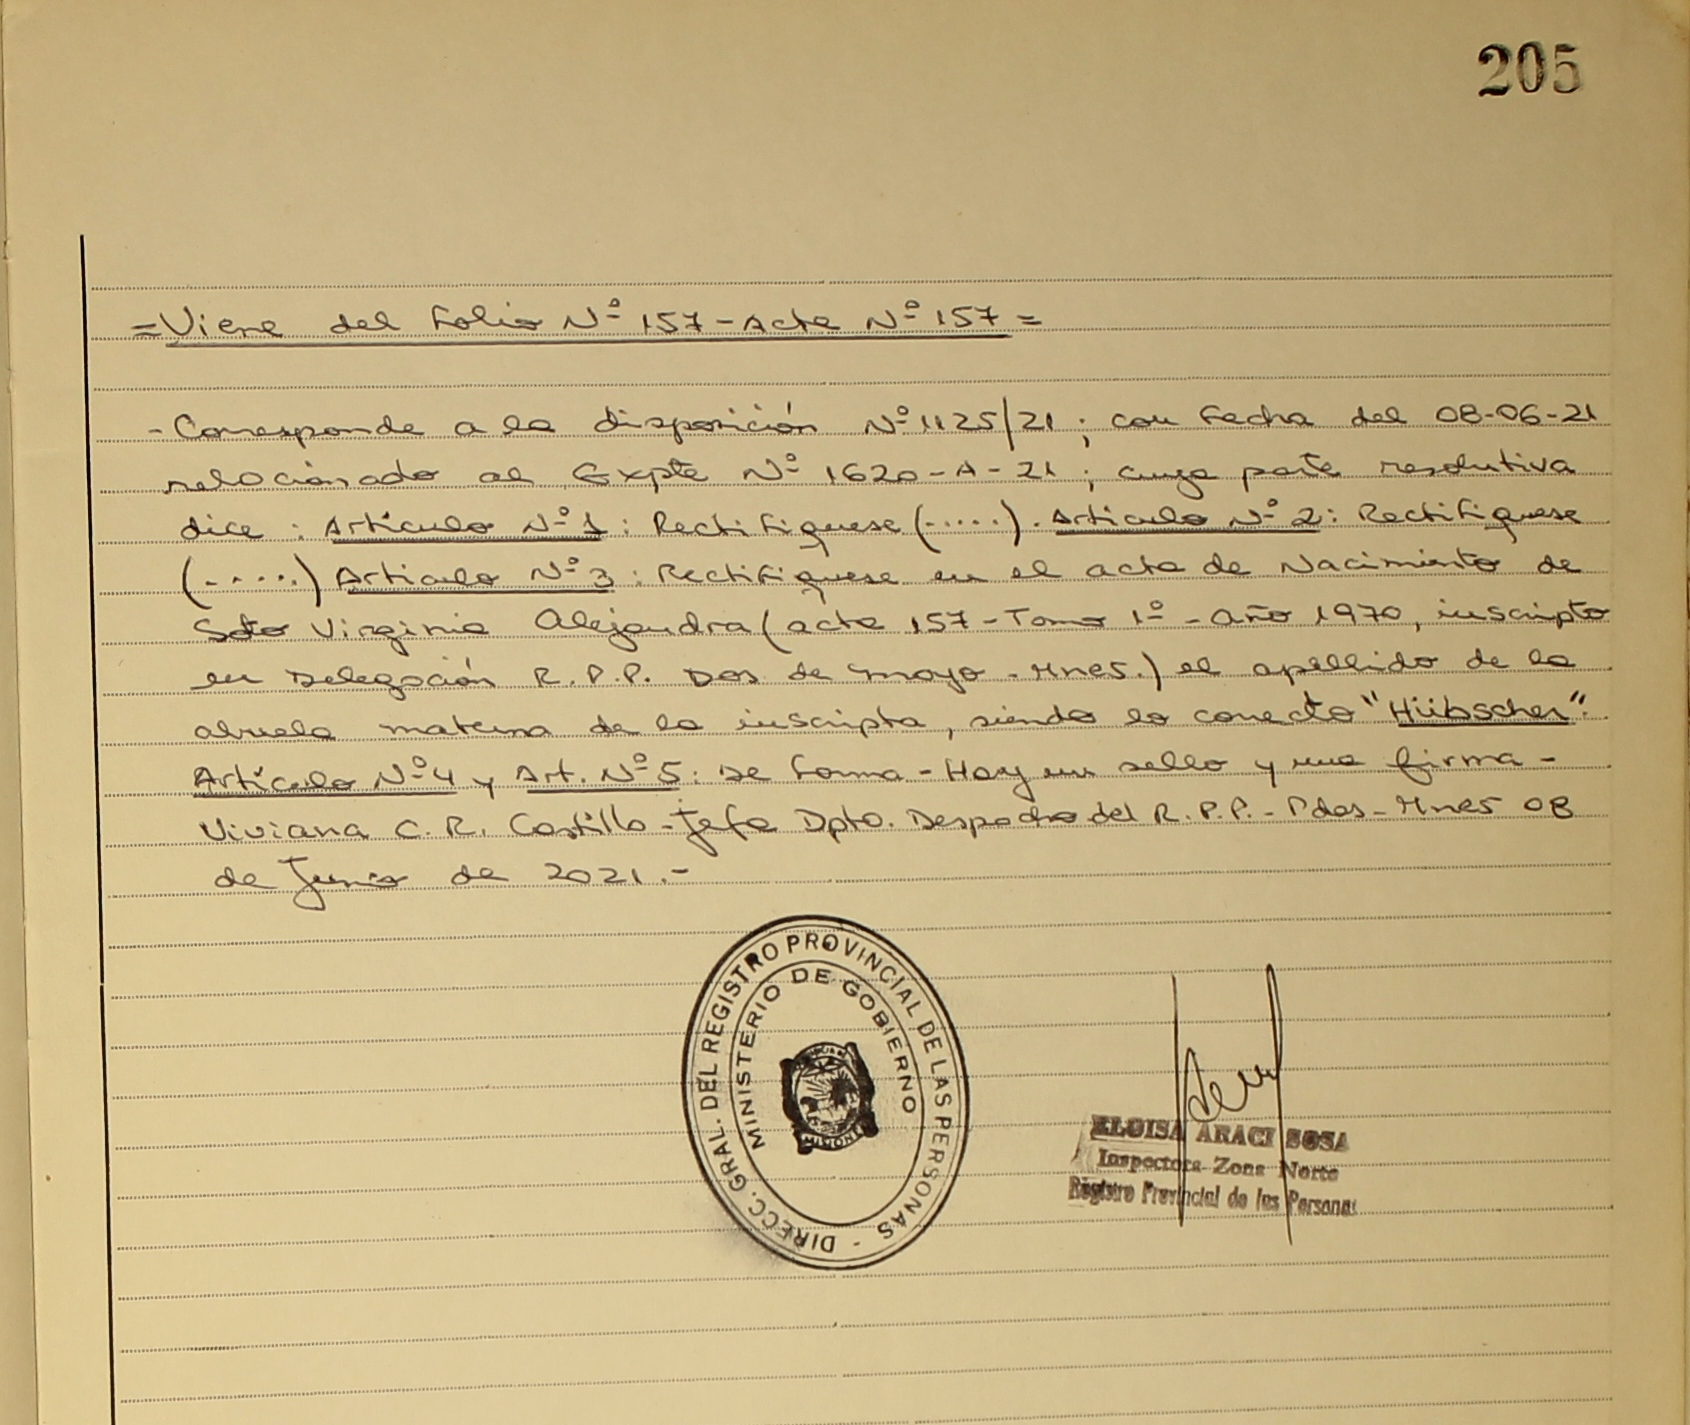 205
=Viene del Folio Nº 157-Acta Nº 157=
-Corresponde a la disposición Nº 1125/21; con fecha del 08-06-21
relacionado al Expte Nº 1620-A-21; cuya parte resolutiva
dice: Artículo Nº 1: Rectifíquese (.....). Artículo Nº 2: Rectifíquese
(.....) Artículo Nº 3: Rectifíquese en el acta de Nacimiento de
Soto Virginia Alejandra (acta 157-Tomo 1º-Año 1970, inscripto
en Delegación R.P.P. Dos de mayo-Mnes.) el apellido de la
abuela materna de la inscripta, siendo lo correcto "Hübscher".
Artículo Nº 4 y Art. Nº 5: De forma-Hay un sello y una firma-
Viviana C. R. Castillo-Jefa Dpto. Despacho del R.P.P.-Pdas-Mnes 08
de Junio de 2021.-
DIRECC. GRAL. DEL REGISTRO PROVINCIAL DE LAS PERSONAS -
MINISTERIO DE GOBIERNO
ELOISA ARACI SOSA
Inspectora Zona Norte
Registro Provincial de las Personas